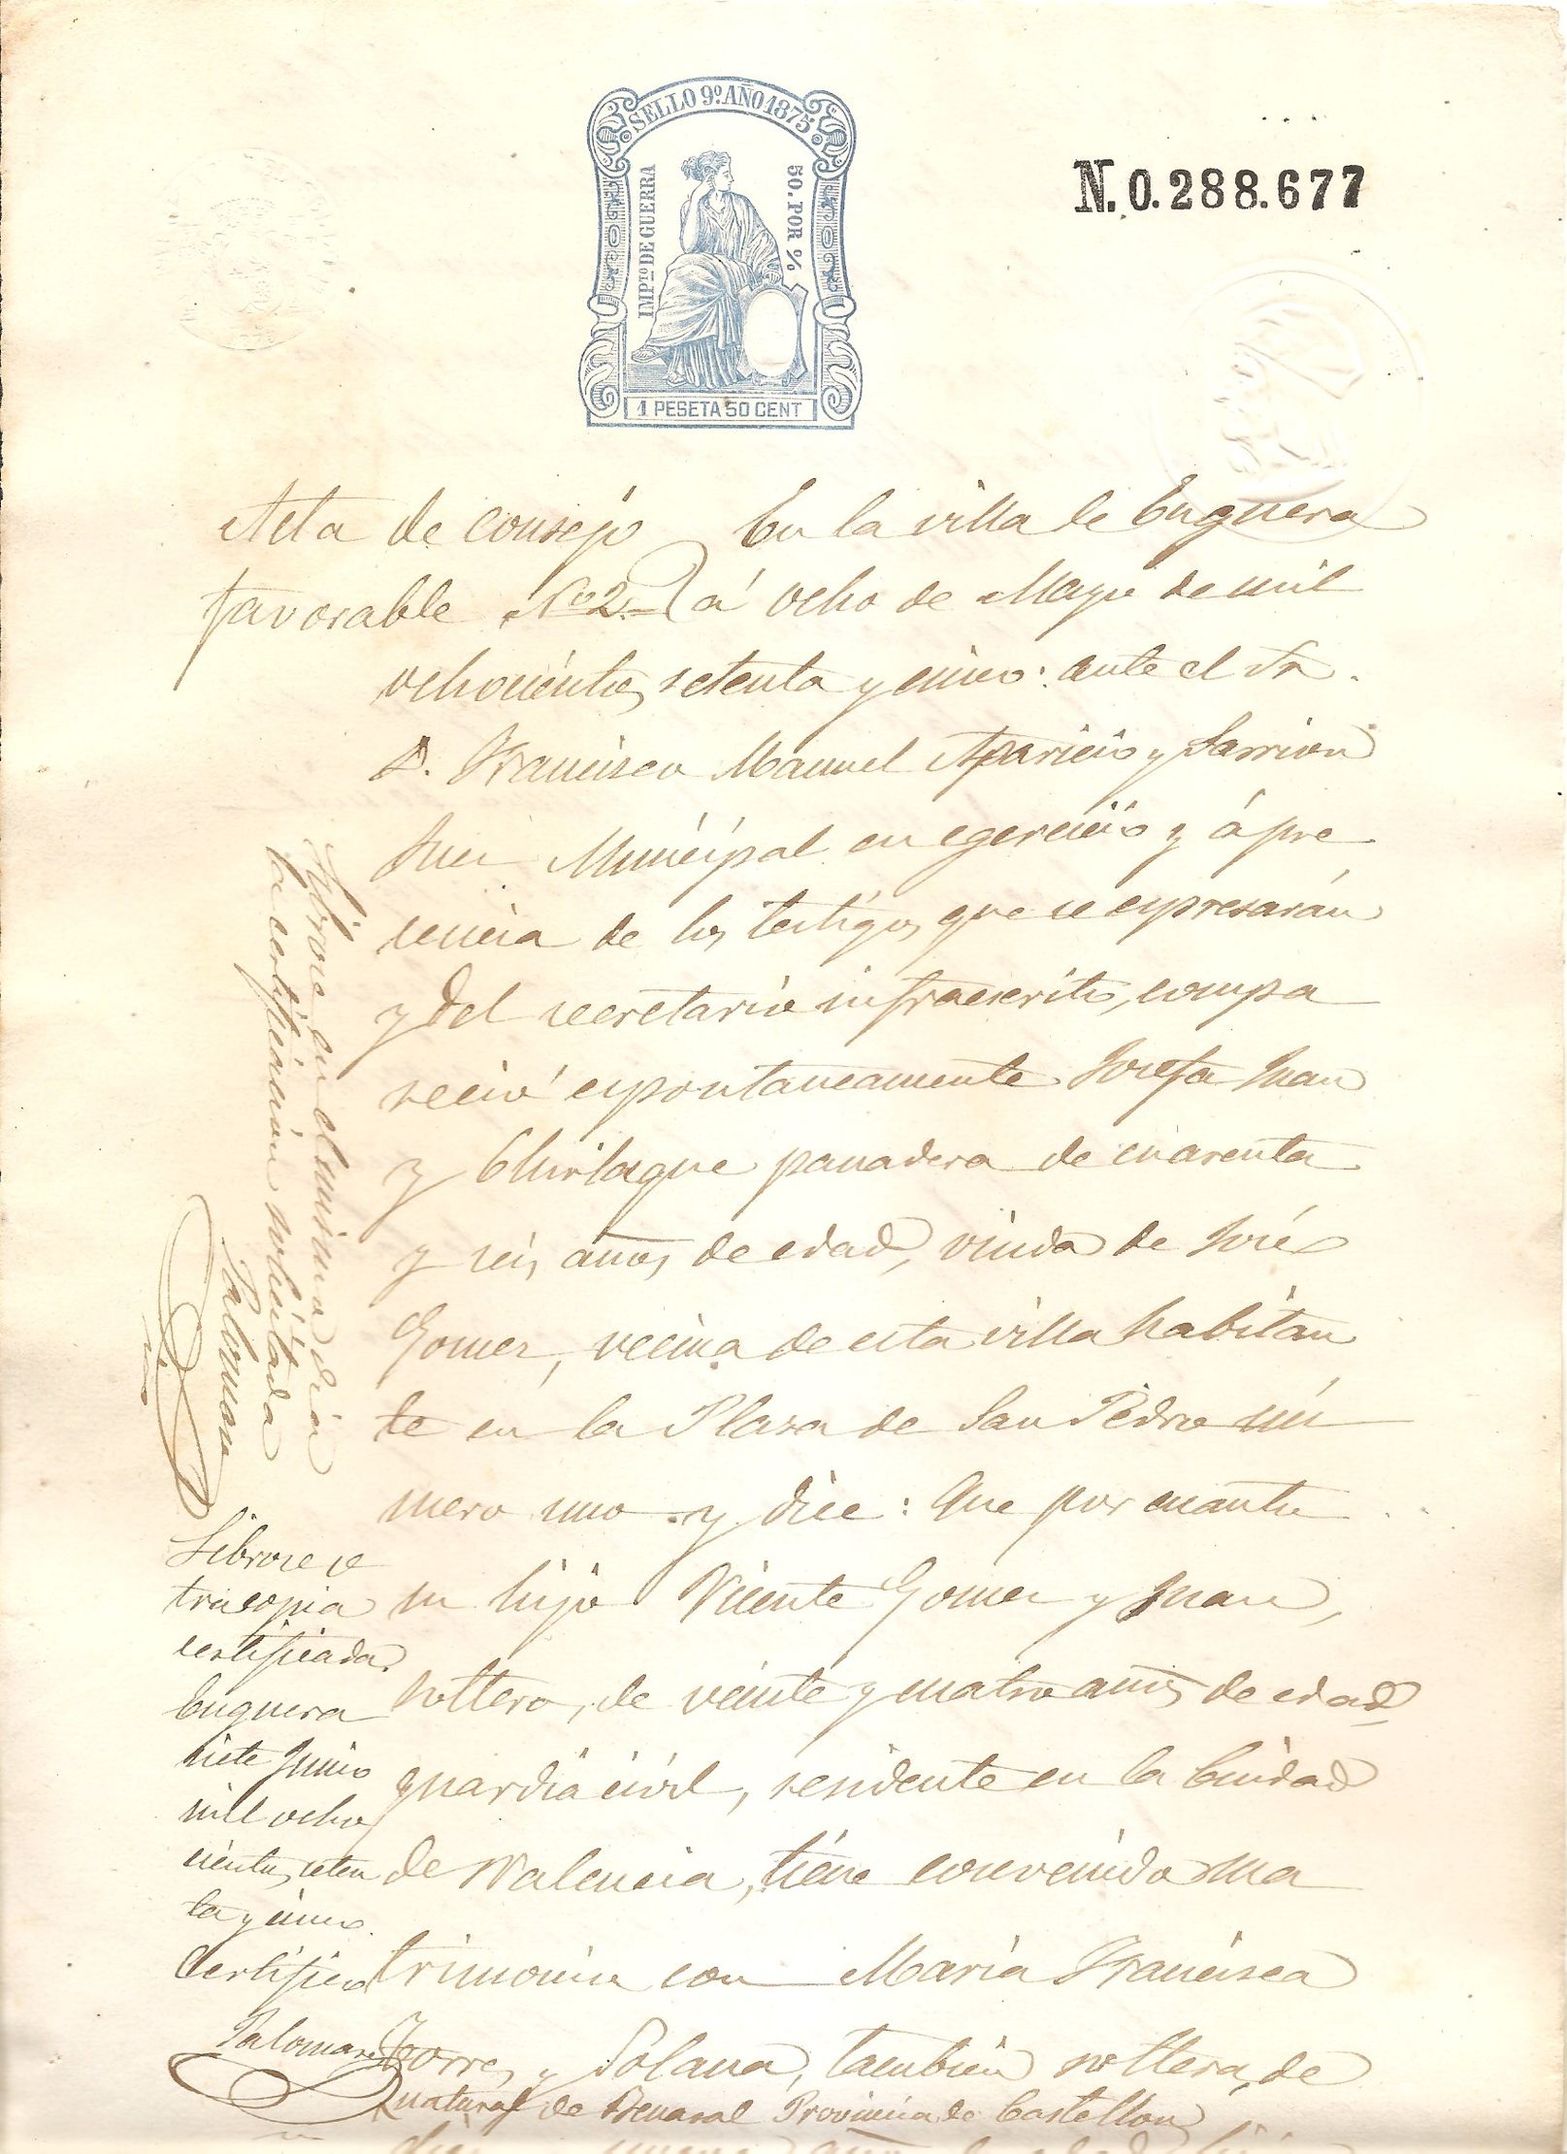 SELLO 9º. AÑO 1875
IMPTO. DE GUERRA
50. POR %
1 PESETA 50 CENT
N. 0.288.677
Acta de consejo
favorable No 2.
En la villa de Enguera
á ocho de Mayo de mil
ochocientos setenta y cinco: ante el Sr.
D. Francisco Manuel Aparicio y Sarrion
Juez Municipal en egercicio y á pre
sencia de los testigos que se expresarán
y del secretario infraescrito, compa
reció expontaneamente Josefa Juan
y Chirlaque panadera de cuarenta
y seis años de edad, viuda de José
Gomez, vecina de esta villa habitan
te en la Plaza de San Pedro nú
mero uno y dice: Que por cuanto
su hijo Vicente Gomez y Juan,
soltero, de veinte y cuatro años de edad,
guardia civil, residente en la Ciudad
de Valencia, tiene convenido ma
trimonio con María Francisca
Torres y Solana, también soltera, de
natural de Benasal Provincia de Castellon
Librose en el mismo dia
la certificación solicitada
Palomares
Librose o
tra copia
certificada.
Enguera
siete Junio
mil ocho
cientos seten
ta y cinco.
Certifico
Palomares